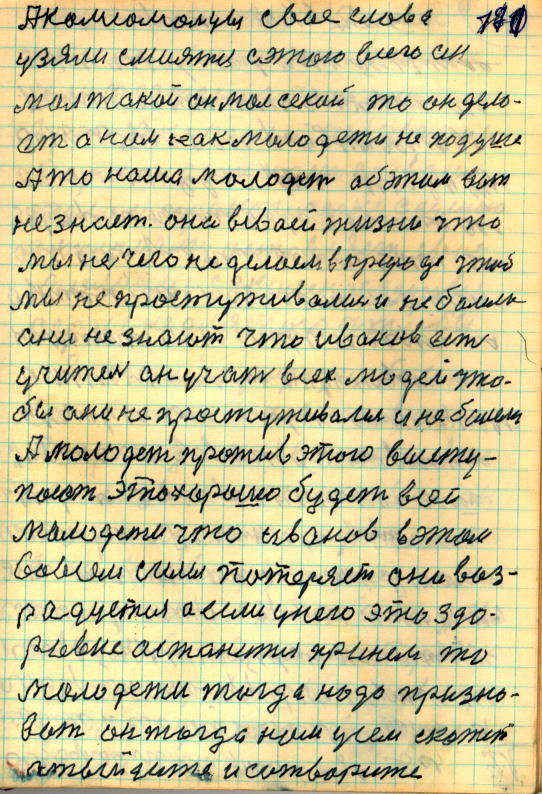 А комсомольцы свае слова
узяли смиятця сэтого всего он
мол такой он мол секой то он дело-
ет а нам как молодежи не подуше
А то наша молодеж об этим вот
не знает. она в своей жизни что
мы не чего не делаем в природе чтоб
мы не простуживалися и не болели
они не знают что иванов ест
учител он учит всех людей что-
бы они не простуживалися и не болели
А молодеж против этого высту-
пают это хорошо будет всей
молодежи что иванов в этом
Совсем силы потеряет она воз-
радуется а если у него это здо-
ровие останится при нем то
молодежи тогда надо призно-
вот он тогда нам усем скажет
Атыйдите и сотворите